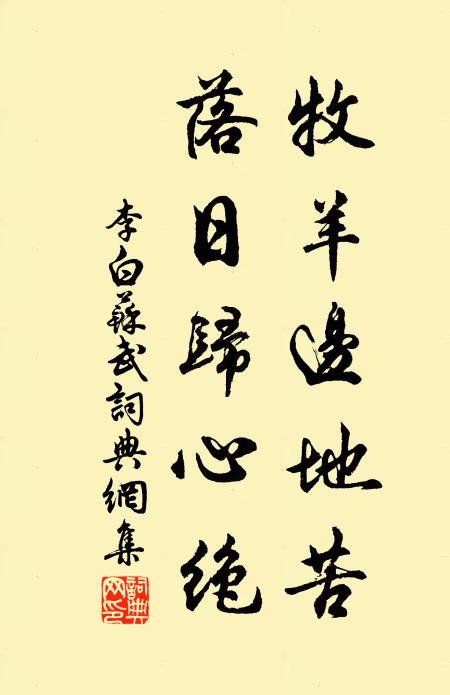 牧羊邊地苦
落日歸心絶
李白蘇武詞典網集
詞典網印